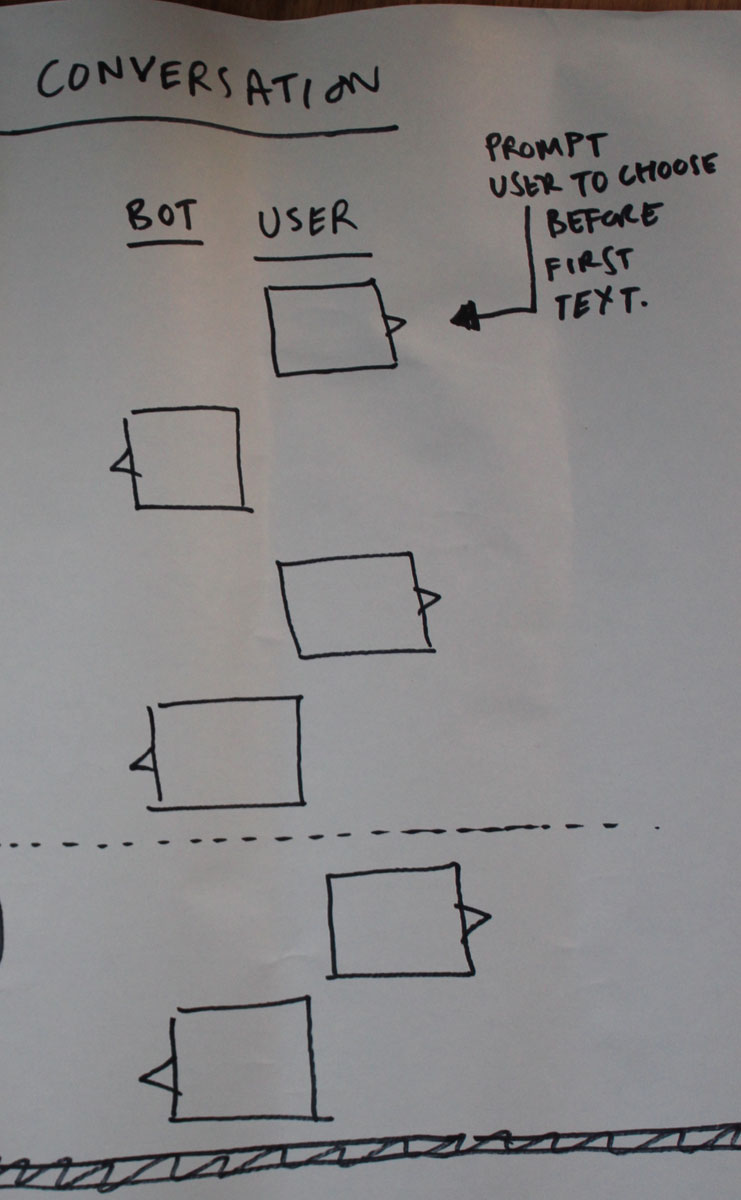 CONVERSATION
BOT USER
PROMPT
USER TO CHOOSE
BEFORE
FIRST
TEXT.